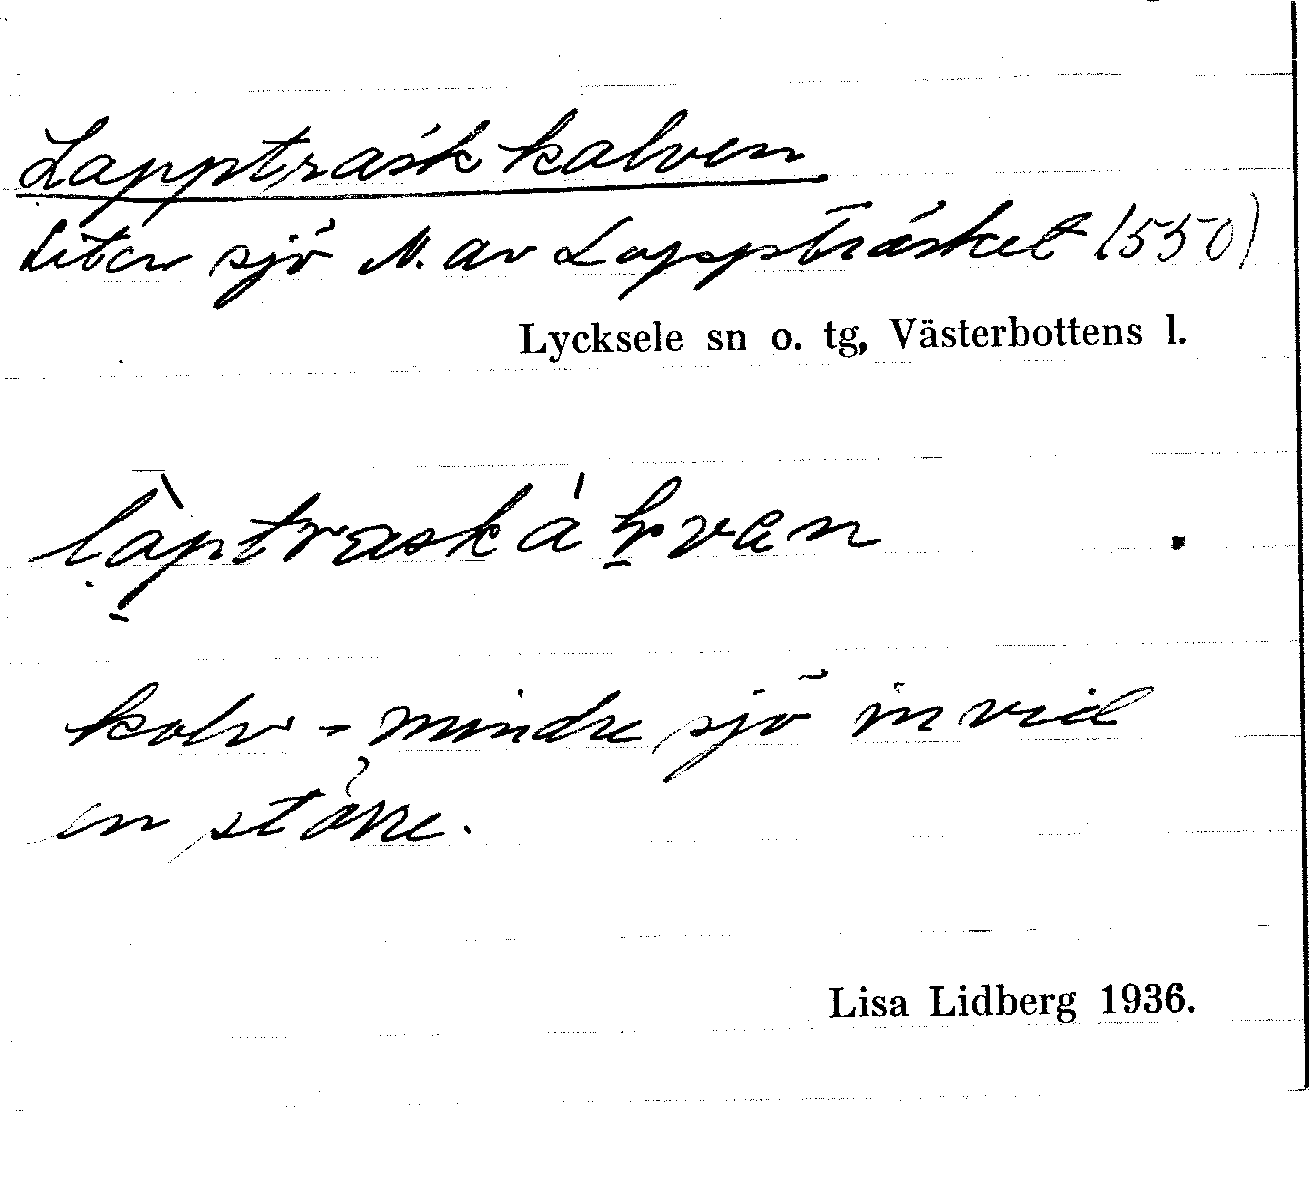 Lappträskkalven
Liten sjö N. av Lappträsket (550)
Lycksele sn o. tg, Västerbottens l.
kalv - mindre sjö invid
en större.
Lisa Lidberg 1936.